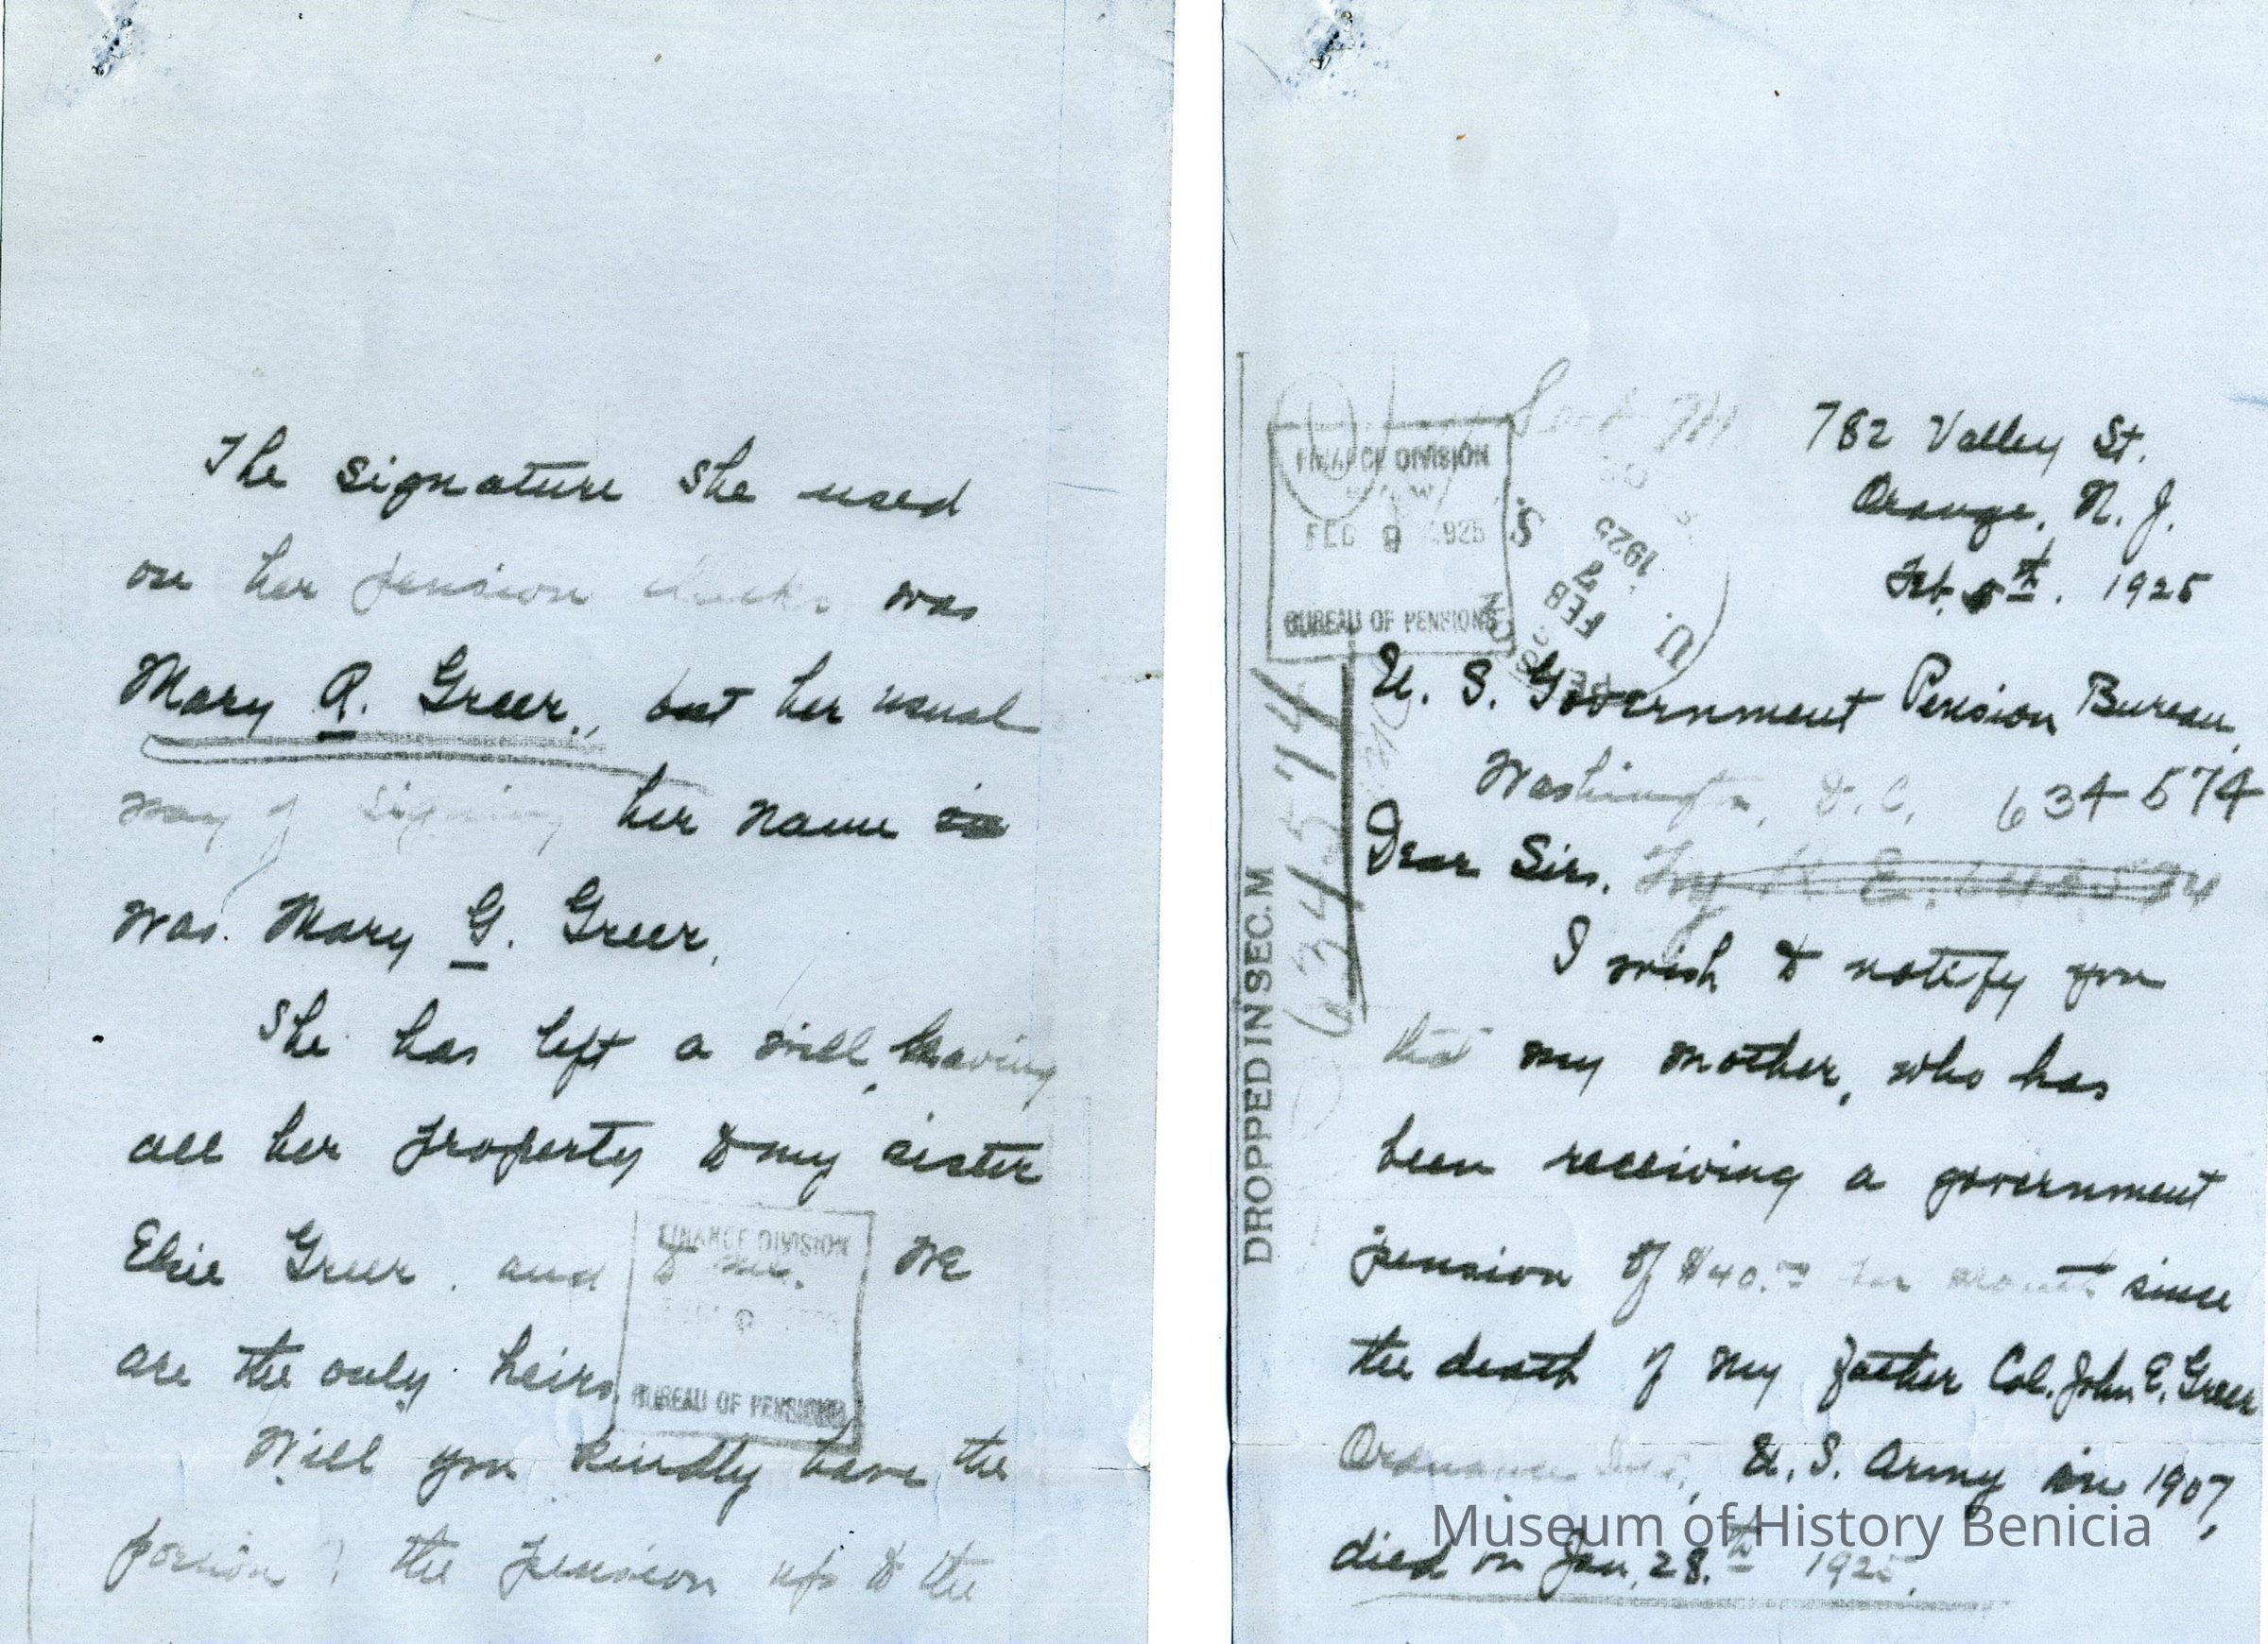 The signature she used
on her pension checks was
Mary A. Greer, but her usual
way of signing her name is
was. Mary G. Greer.
She has left a will, leaving
all her property to my sister
Elsie Greer. and to me. We
are the only heirs.
Will you kindly have the
portion of the pension up to the
FINANCE DIVISION
BUREAU OF PENSIONS
FINANCE DIVISION
FEB 9 1925
BUREAU OF PENSIONS
U. S.
FEB 7
1925
DROPPED IN SEC. M
634574
782 Valley St.
Orange, N. J.
Feb. 5th. 1925
U. S. Government Pension Bureau,
Washington, D. C. 634574
Dear Sirs.
I wish to notify you
that my mother, who has
been receiving a government
pension of $40.00 per month since
the death of my father Col. John E. Greer
Ordnance U. S. Army in 1907,
died on Jan. 28.th 1925.
Museum of History Benicia